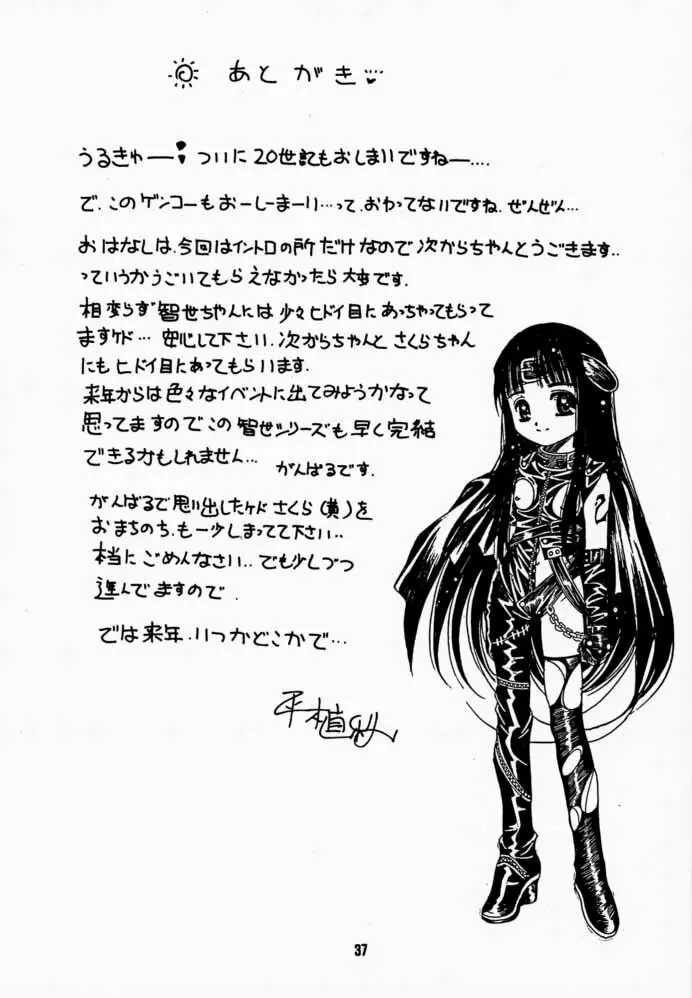 あとがき
うるきゅー ついに20世記もおしまいですねー‥‥
で、このゲンコーもおーしーまーい…って、おわってないですね、ぜんぜん…
おはなしは、今回はイントロの所だけなので次からちゃんとうごきます‥
っていうかうごいてもらえなかったら大事です.
相変らず智世ちゃんには少々ヒドイ目にあっちゃってもらって
ますケド… 安心して下さい. 次からちゃんと さくらちゃん
にもヒドイ目にあってもらいます.
来年からは色々なイベントに出てみようかなって
思ってますのでこの智世シリーズも早く完結
できるかもしれません… がんばるです.
がんばるで思い出したケド さくら(黄)を
おまちのち、も一少しまってて下さい‥
本当にごめんなさい‥ でも少しづつ
進んでますので.
では来年、いつかどこかで…
37